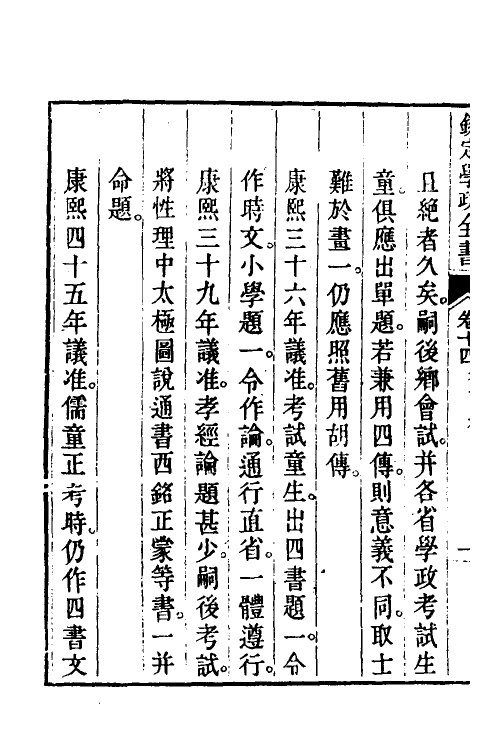 欽定學政全書 卷十四
且絕者久矣。嗣後鄉會試。并各省學政考試生
童。俱應出單題。若兼用四傳。則意義不同。取士
難於畫一。仍應照舊用胡傳。
康熙三十六年議准。考試童生。出四書題一。令
作時文。小學題一。令作論。通行直省。一體遵行。
康熙三十九年議准。孝經論題甚少。嗣後考試。
將性理中太極圖說通書西銘正蒙等書。一并
命題。
康熙四十五年議准。儒童正考時。仍作四書文